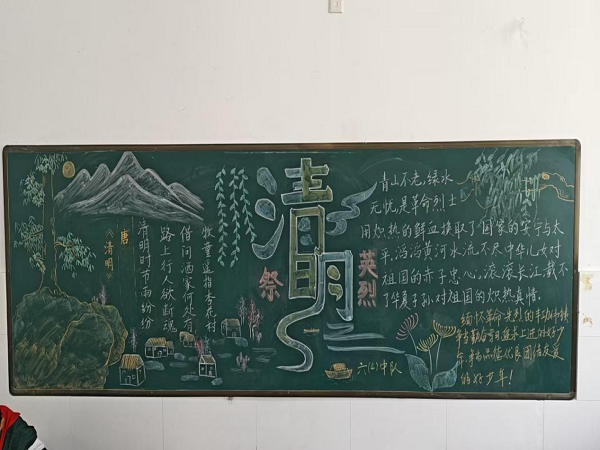 《清明》
唐
清明时节雨纷纷
路上行人欲断魂
借问酒家何处有
牧童遥指杏花村
清明
祭
英烈
青山不老,绿水
无忧,是革命烈士
用炽热的鲜血换取了国家的安宁与太
平,滔滔黄河水流不尽中华儿女对
祖国的赤子忠心,滚滚长江,载不
了华夏子孙对祖国的炽热真情。
缅怀革命先烈的丰功伟绩
争当勤奋学习追求上进的好少
年,争当品德优良团结友爱
的好少年!
中队